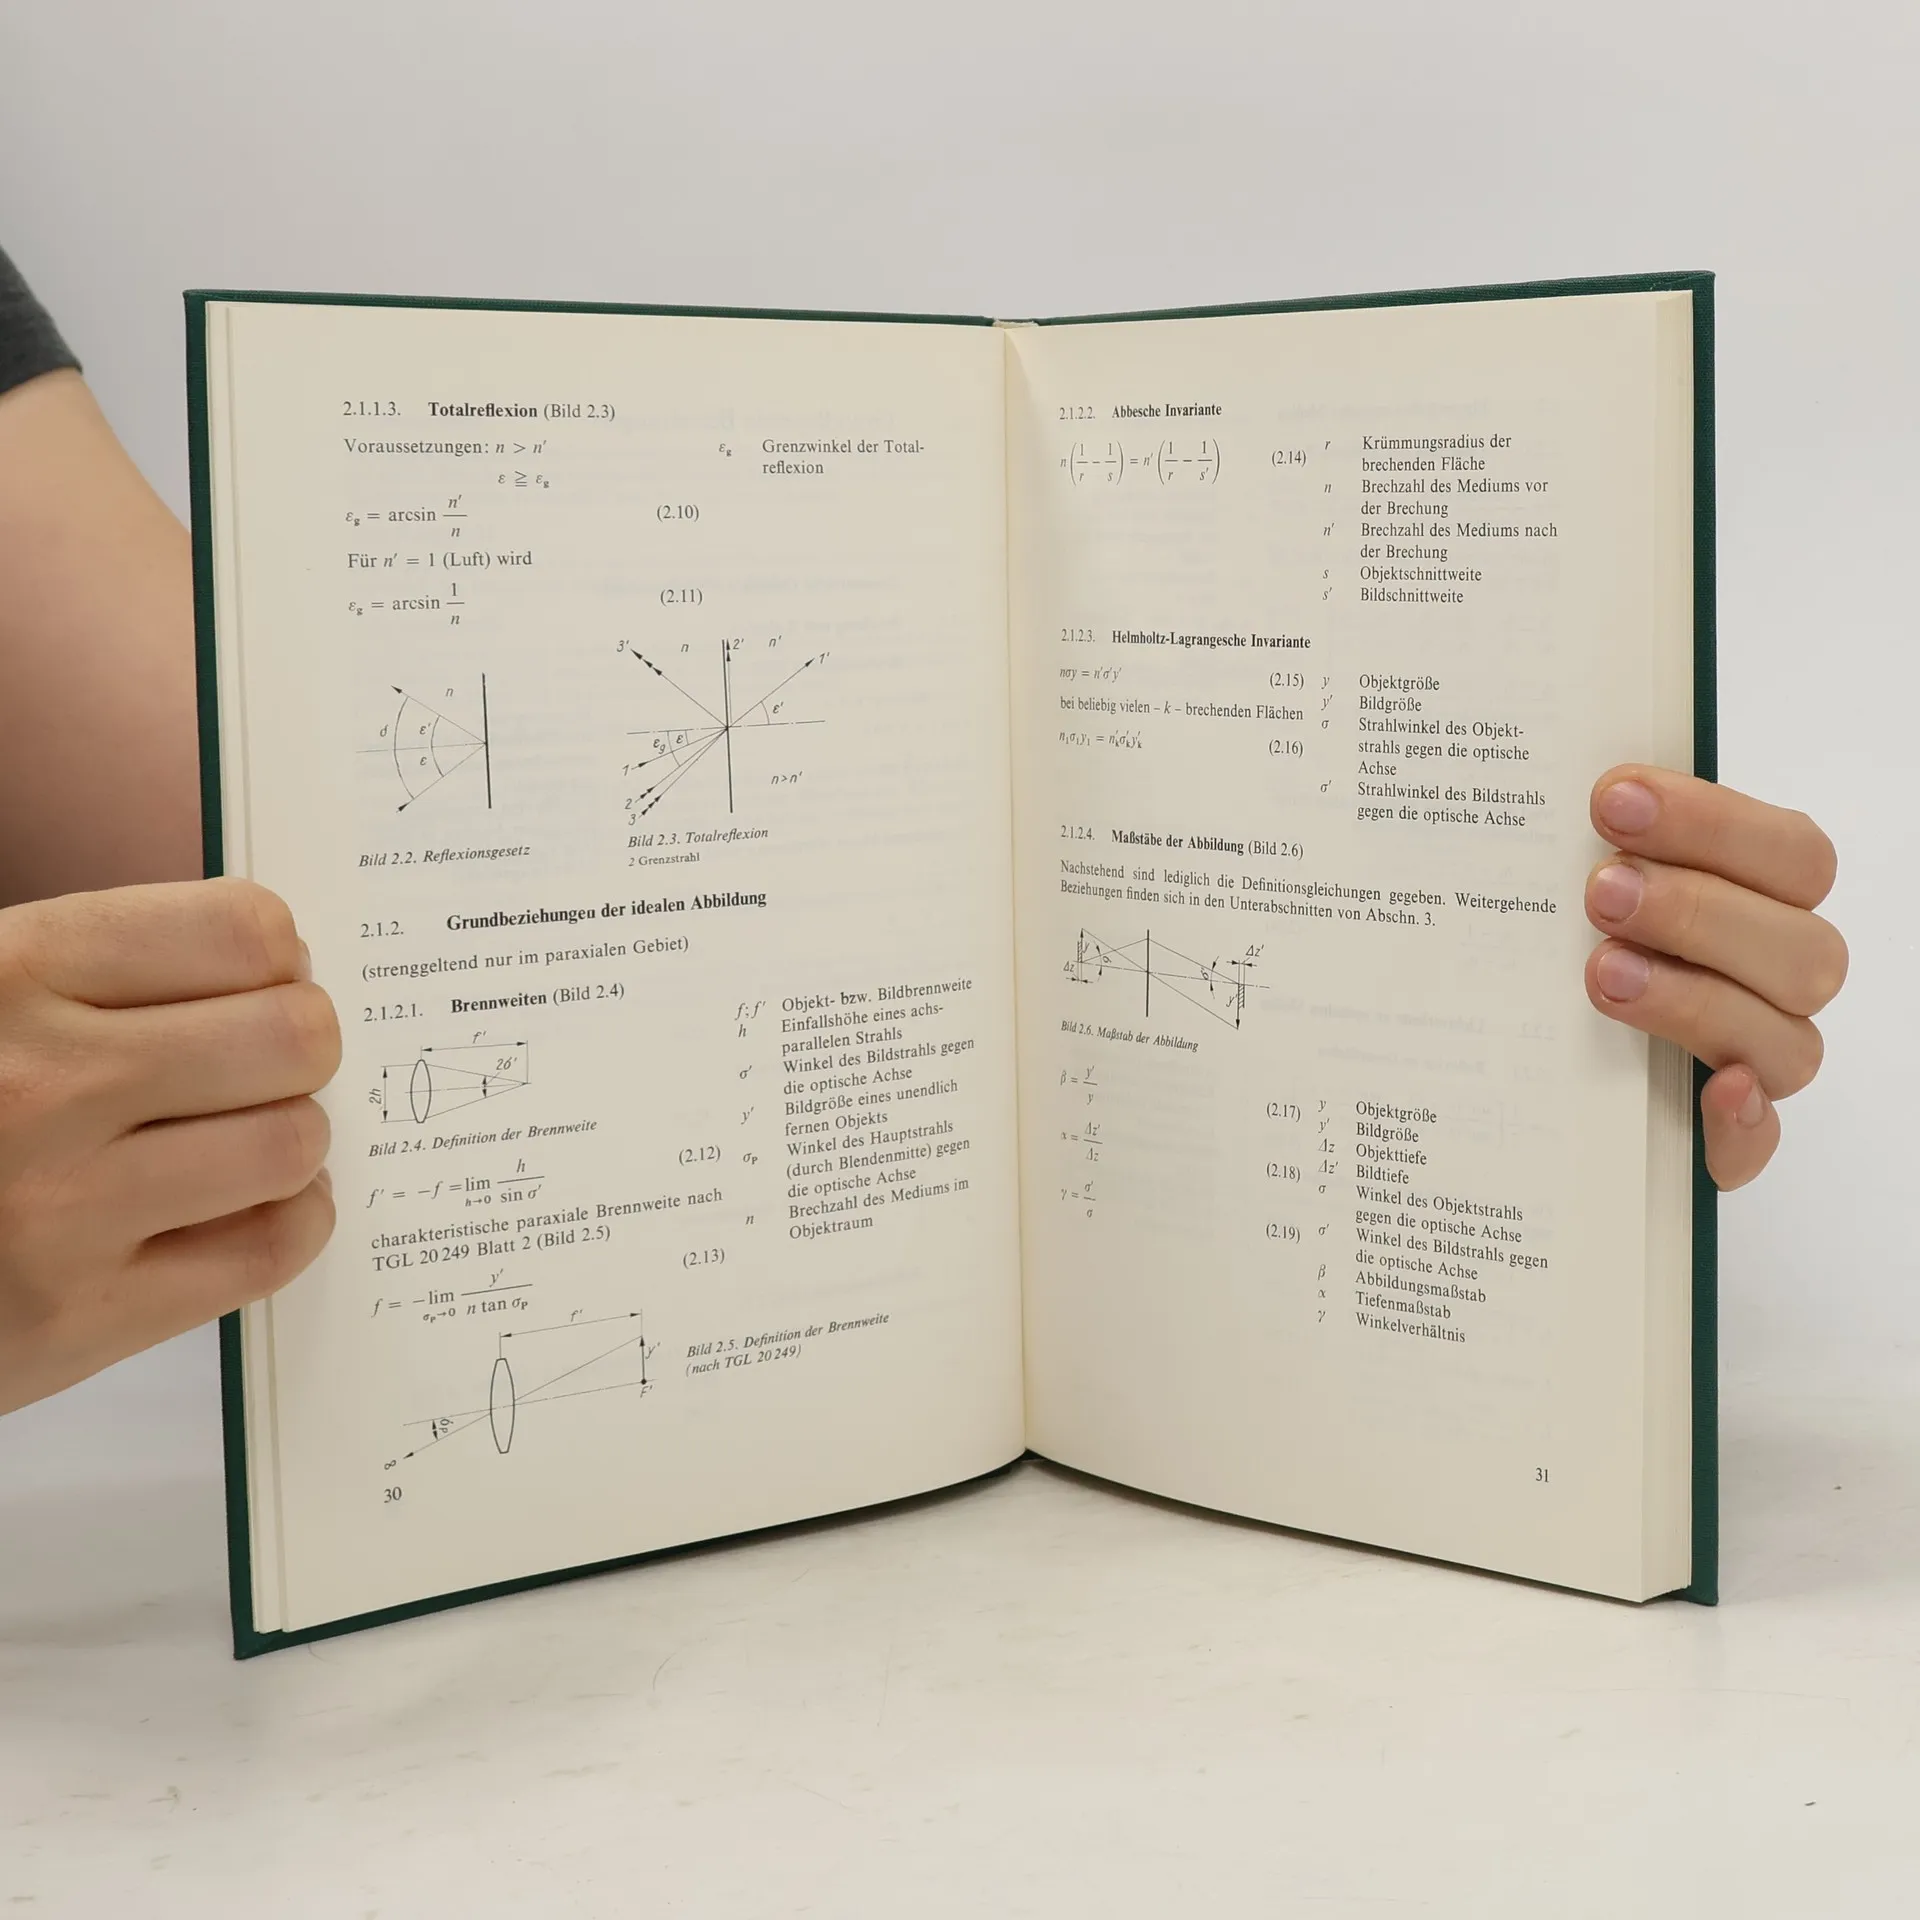 2.1.1.3. Totalreflexion (Bild 2.3)
Voraussetzungen: n > n′
ε ≧ ε_g
ε_g Grenzwinkel der Total-
reflexion
ε_g = arcsin n′/n (2.10)
Für n′ = 1 (Luft) wird
ε_g = arcsin 1/n (2.11)
n
d
ε′
ε
Bild 2.2. Reflexionsgesetz
3′ n 2′ n′ 1′
ε′
ε_g ε
1
2
3
n>n′
Bild 2.3. Totalreflexion
2 Grenzstrahl
2.1.2. Grundbeziehungen der idealen Abbildung
(strenggeltend nur im paraxialen Gebiet)
2.1.2.1. Brennweiten (Bild 2.4)
f′
2σ′
2h
Bild 2.4. Definition der Brennweite
f′ = −f = lim h→0 h/sin σ′ (2.12)
charakteristische paraxiale Brennweite nach
TGL 20 249 Blatt 2 (Bild 2.5)
f = −lim σ_P→0 y′/n tan σ_P (2.13)
f; f′ Objekt- bzw. Bildbrennweite
h Einfallshöhe eines achs-
parallelen Strahls
σ′ Winkel des Bildstrahls gegen
die optische Achse
y′ Bildgröße eines unendlich
fernen Objekts
σ_P Winkel des Hauptstrahls
(durch Blendenmitte) gegen
die optische Achse
n Brechzahl des Mediums im
Objektraum
f′
y′
F′
σ_P
∞
Bild 2.5. Definition der Brennweite
(nach TGL 20 249)
30
2.1.2.2. Abbesche Invariante
n(1/r − 1/s) = n′(1/r − 1/s′) (2.14)
r Krümmungsradius der
brechenden Fläche
n Brechzahl des Mediums vor
der Brechung
n′ Brechzahl des Mediums nach
der Brechung
s Objektschnittweite
s′ Bildschnittweite
2.1.2.3. Helmholtz-Lagrangesche Invariante
nσy = n′σ′y′ (2.15)
bei beliebig vielen – k – brechenden Flächen
n₁σ₁y₁ = n′_kσ′_ky′_k (2.16)
y Objektgröße
y′ Bildgröße
σ Strahlwinkel des Objekt-
strahls gegen die optische
Achse
σ′ Strahlwinkel des Bildstrahls
gegen die optische Achse
2.1.2.4. Maßstäbe der Abbildung (Bild 2.6)
Nachstehend sind lediglich die Definitionsgleichungen gegeben. Weitergehende
Beziehungen finden sich in den Unterabschnitten von Abschn. 3.
y
σ
Δz
Δz′
σ′
y′
Bild 2.6. Maßstab der Abbildung
β = y′/y (2.17)
α = Δz′/Δz (2.18)
γ = σ′/σ (2.19)
y Objektgröße
y′ Bildgröße
Δz Objekttiefe
Δz′ Bildtiefe
σ Winkel des Objektstrahls
gegen die optische Achse
σ′ Winkel des Bildstrahls gegen
die optische Achse
β Abbildungsmaßstab
α Tiefenmaßstab
γ Winkelverhältnis
31